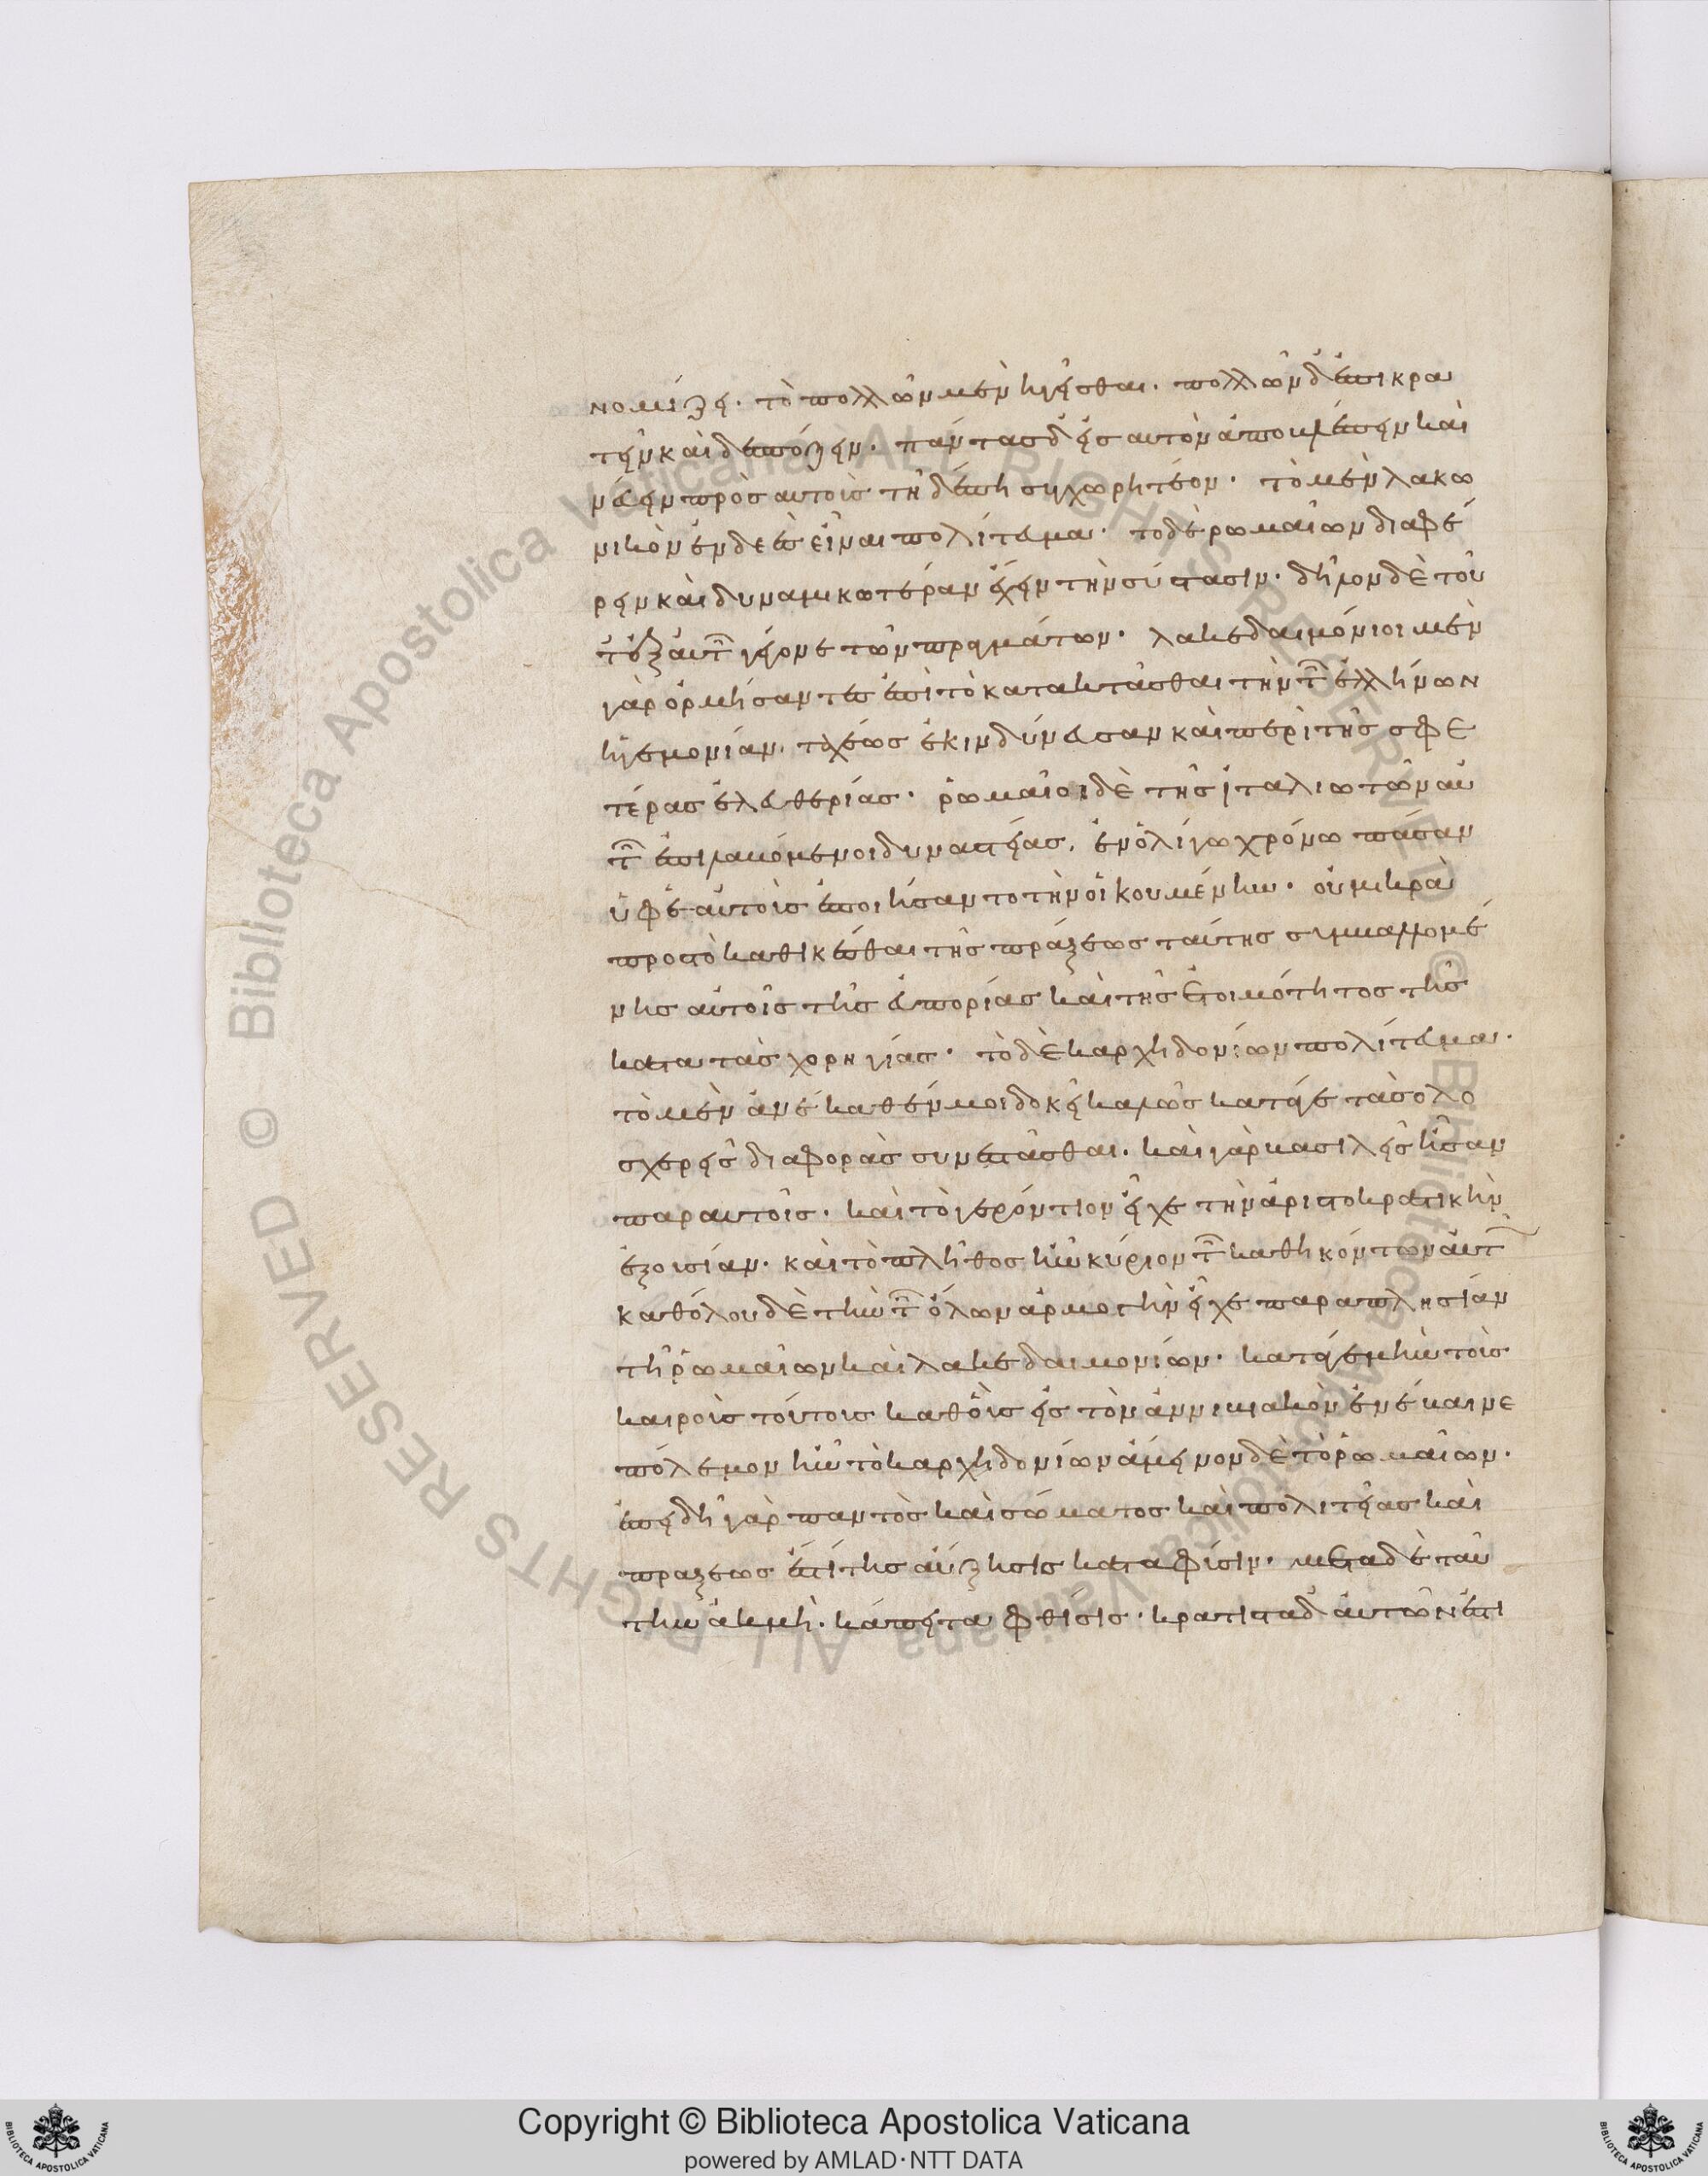 νομίζει· τὸ πολλῶν μὲν ἡγεῖσθαι· πολλῶν δ' ἐπικρα
τεῖν καὶ δεσπόζειν· πάντας δ' εἰς αὐτὸν ἀποβλέπειν καὶ
νεύειν πρὸς αὐτοῖς τῆδέ πη συγχωρητέον· τὸ μὲν λακω
νικὸν ἐνδεὲς εἶναι πολίτευμα· τὸ δὲ ῥωμαίων διαφέ
ρειν καὶ δυναμικωτέραν ἔχειν τὴν σύστασιν· δῆλον δὲ τοῦ
τ' ἐξ αὐτῶν γέγονε τῶν πραγμάτων· λακεδαιμόνιοι μὲν
γὰρ ὁρμήσαντες ἐπὶ τὸ κατακτᾶσθαι τὴν τῶν ἑλλήνων
ἡγεμονίαν· ταχέως ἐκινδύνευσαν καὶ περὶ τῆς σφε
τέρας ἐλευθερίας· ῥωμαῖοι δὲ τῆς ἰταλιωτῶν αὐ
τῶν ἐπιλαβόμενοι δυναστείας, ἐν ὀλίγω χρόνω πᾶσαν
ὑφ' ἑαυτοὺς ἐποιήσαντο τὴν οἰκουμένην· οὐ μικρὰ
πρὸς τὸ καθικέσθαι τῆς πράξεως ταύτης συμβαλλομέ
νης αὐτοῖς τῆς εὐπορίας καὶ τῆς ἑτοιμότητος τῆς
κατα τὰς χορηγίας· τὸ δὲ καρχηδονίων πολίτευμα·
τὸ μὲν ἀνέκαθέν μοι δοκεῖ καλῶς κατά γε τὰς ὁλο
σχερεῖς διαφορὰς συνεστᾶσθαι· καὶ γὰρ βασιλεῖς ἦσαν
παρ αὐτοῖς· καὶ τὸ γερόντιον εἶχε τὴν ἀριστοκρατικὴν
ἐξουσίαν· καὶ τὸ πλῆθος ἦν κύριον τῶν καθηκόντων αὐτῶ
καθόλου δὲ τὴν τῶν ὅλων ἁρμογὴν εἶχε παραπλησίαν
τῆ ῥωμαίων καὶ λακεδαιμονίων· κατά γε μὴν τοὺς
καιροὺς τούτους καθ' οὓς εἰς τὸν ἀννιβιακὸν ἐνέβαινε
πόλεμον ἦν τὸ καρχηδονίων ἄμεινον δὲ τὸ ῥωμαίων·
ἐπειδὴ γὰρ παντὸς καὶ σώματος καὶ πολιτείας καὶ
πραξεως ἐστί τις αὔξησις κατα φύσιν· μετα δὲ ταύ
την ἀκμὴ· κάπειτα φθίσις· κρατιστα δ' αὐτῶν ἐστι
Copyright © Biblioteca Apostolica Vaticana
powered by AMLAD·NTT DATA